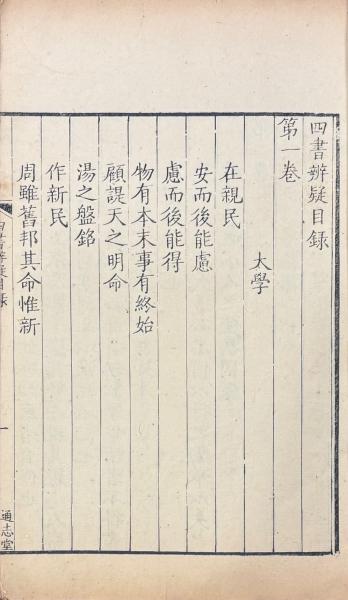 四書辨疑目録
第一卷
大學
在親民
安而後能慮
慮而後能得
物有本末事有終始
顧諟天之明命
湯之盤銘
作新民
周雖舊邦其命惟新
四書辨疑目録
一
通志堂